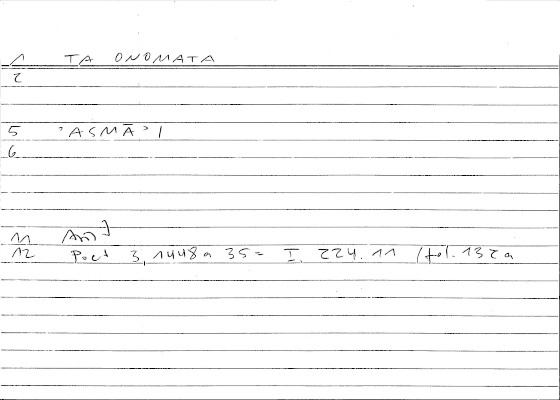 1 TA ONOMATA
2
5 ʾASMĀʾ I
6
11
12 Poet 3, 1448a 35 = I. 224. 11 /fol. 132a